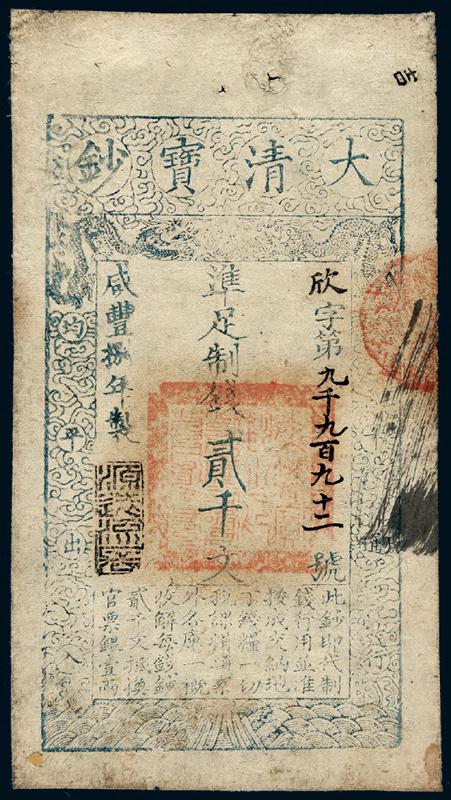 大清寶鈔
欣字第九千九百九十二號
準足制錢貳千文
咸豐捌年製
均平出入
此鈔即代制
錢行用並准
按成交納地
丁錢糧一切
稅課捐項京
外各庫一概
收解每錢鈔
貳千文抵換
官票銀壹兩